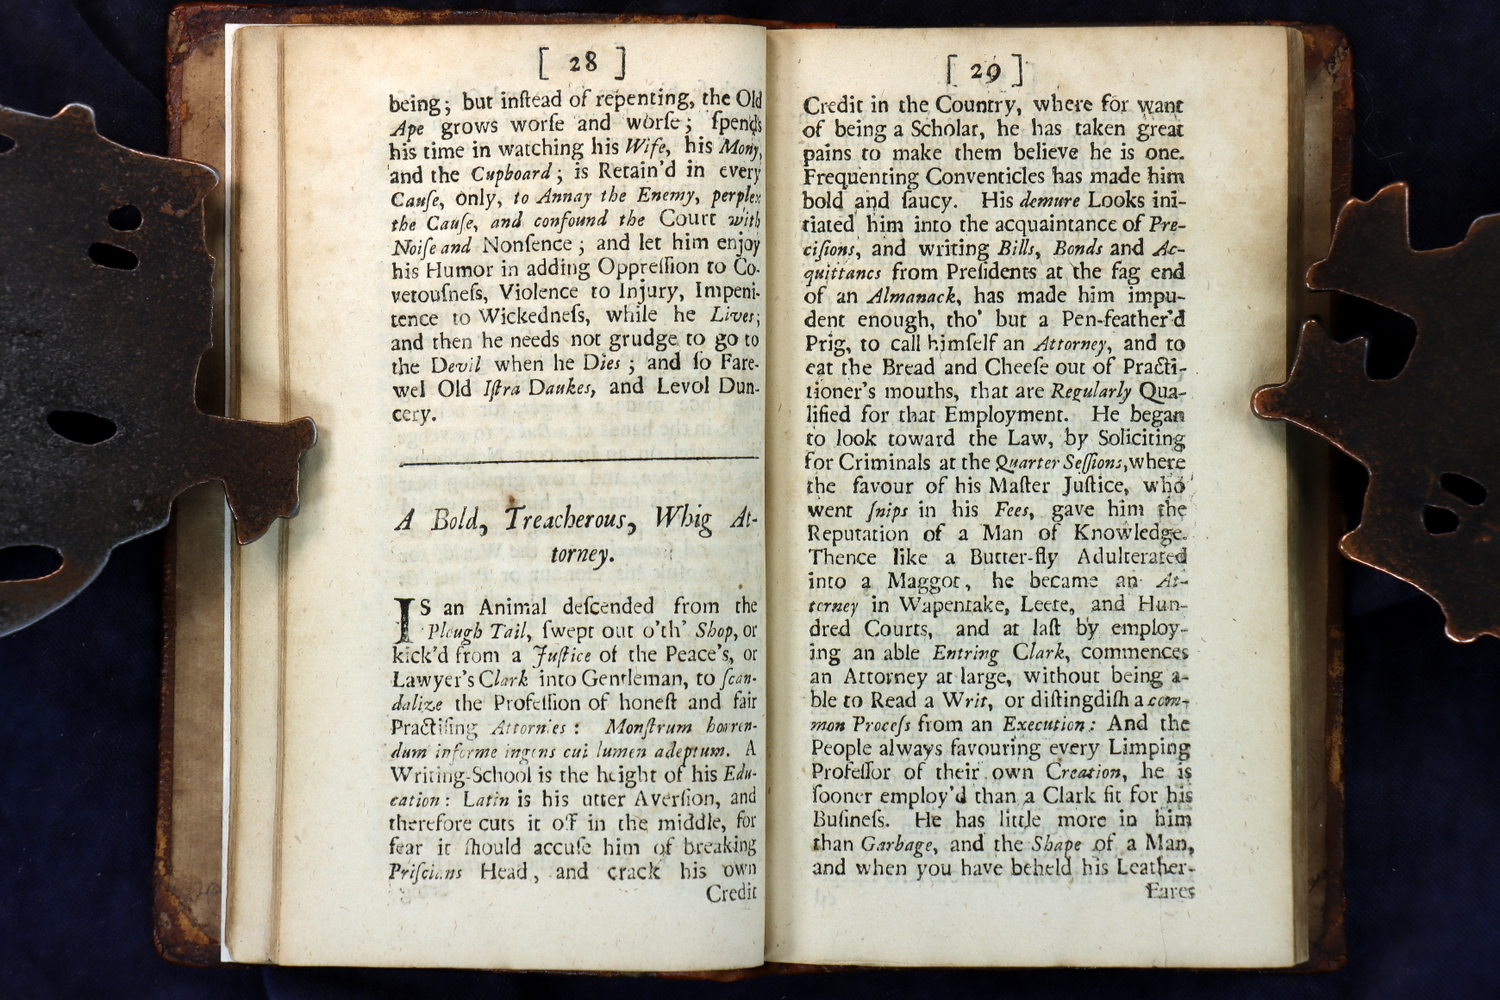 [ 28 ]
being; but inſtead of repenting, the Old
Ape grows worſe and worſe; ſpends
his time in watching his Wife, his Mony,
and the Cupboard; is Retain'd in every
Cauſe, only, to Annay the Enemy, perplex
the Cauſe, and confound the Court with
Noiſe and Nonſence; and let him enjoy
his Humor in adding Oppreſſion to Co-
vetouſneſs, Violence to Injury, Impeni-
tence to Wickedneſs, while he Lives;
and then he needs not grudge to go to
the Devil when he Dies; and ſo Fare-
wel Old Iſtra Daukes, and Levol Dun-
cery.
A Bold, Treacherous, Whig At-
torney.
IS an Animal deſcended from the
Plough Tail, ſwept out o'th' Shop, or
kick'd from a Juſtice of the Peace's, or
Lawyer's Clark into Gentleman, to ſcan-
dalize the Profeſſion of honeſt and fair
Practiſing Attornies: Monſtrum horren-
dum informe ingens cui lumen adeptum. A
Writing-School is the height of his Edu-
cation: Latin is his utter Averſion, and
therefore cuts it off in the middle, for
fear it ſhould accuſe him of breaking
Priſcians Head, and crack his own
Credit
[ 29 ]
Credit in the Country, where for want
of being a Scholar, he has taken great
pains to make them believe he is one.
Frequenting Conventicles has made him
bold and ſaucy. His demure Looks ini-
tiated him into the acquaintance of Pre-
ciſions, and writing Bills, Bonds and Ac-
quittancs from Preſidents at the fag end
of an Almanack, has made him impu-
dent enough, tho' but a Pen-feather'd
Prig, to call himſelf an Attorney, and to
eat the Bread and Cheeſe out of Practi-
tioner's mouths, that are Regularly Qua-
lified for that Employment. He began
to look toward the Law, by Soliciting
for Criminals at the Quarter Seſſions, where
the favour of his Maſter Juſtice, who
went ſnips in his Fees, gave him the
Reputation of a Man of Knowledge.
Thence like a Butter-fly Adulterated
into a Maggot, he became an At-
torney in Wapentake, Leete, and Hun-
dred Courts, and at laſt by employ-
ing an able Entring Clark, commences
an Attorney at large, without being a-
ble to Read a Writ, or diſtingdiſh a com-
mon Proceſs from an Execution: And the
People always favouring every Limping
Profeſſor of their own Creation, he is
ſooner employ'd than a Clark fit for his
Buſineſs. He has little more in him
than Garbage, and the Shape of a Man,
and when you have beheld his Leather-
Eares